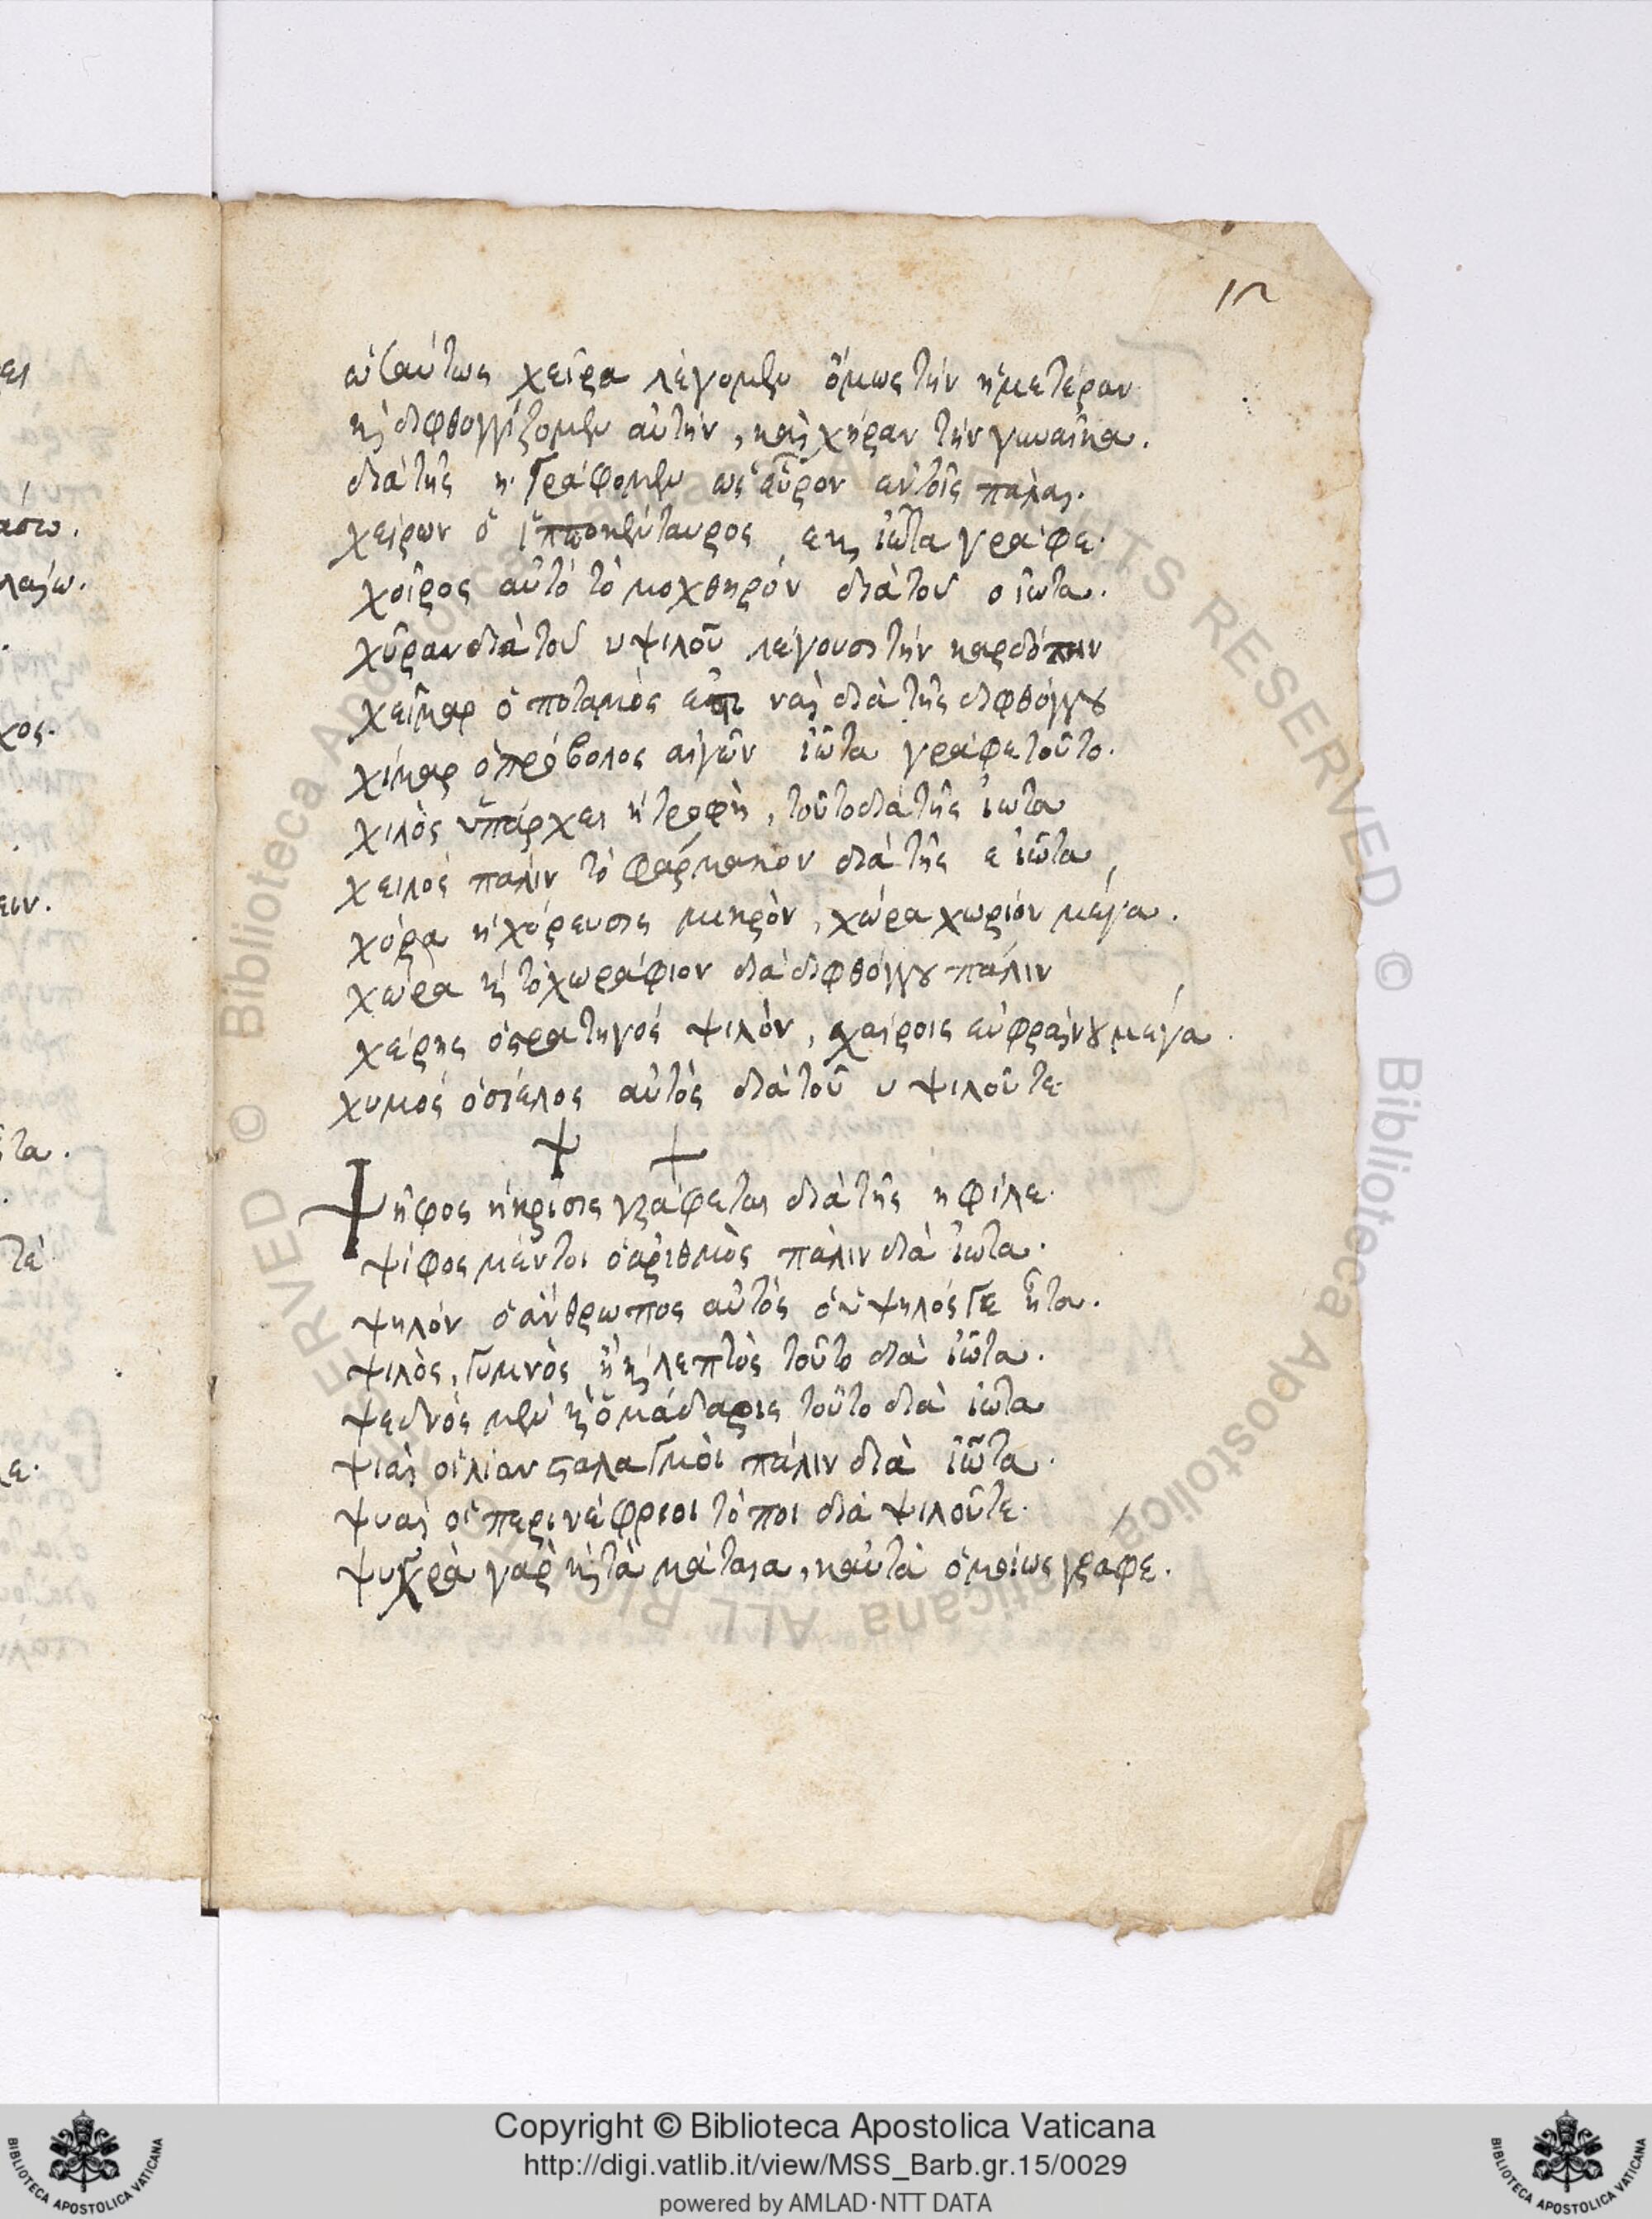 12
ὡσαύτως χεῖρα λέγομεν ὅμως τὴν ἡμετέραν
κ διφθογγίζομεν αὐτήν, καὶ χήραν τὴν γυναῖκα.
διὰ τῆς η. γράφομεν ὡς εὗρον ἐν τοῖς παλαι.
χείρων ὁ ἱπποκένταυρος ε κ ἰῶτα γράφε.
χοῖρος αὐτὸ τὸ μοχθηρόν διὰ τοῦ ο ἰῶτα.
χῦραν διὰ τοῦ υ ψιλοῦ λέγουσι τὴν καρδόπην
χείμαρ ὁ ποταμός ἐστι ναὶ διὰ τῆς διφθόγγου
χίμαρ ὁ πρόβολος αἰγῶν ἰῶτα γράφε τοῦτο.
χιλὸς ὑπάρχει ἡ τροφὴ, τοῦτο διὰ τῆς ἰῶτα
χειλὸς πάλιν τὸ φάρμακον διὰ τῆς ε ἰῶτα
χόρα ἡ χόρευσις μικρὸν, χώρα χωρίον μέγα.
χώρα κ τὸ χωράφιον διὰ διφθόγγου πάλιν
χέρης ὁ στρατηγός ψιλὸν, χαίροις εὐφραίνου μέγα.
χυμός ὁ σίελος αὐτὸς διὰ τοῦ υ ψιλοῦ τε
Ψ
Ψῆφος ἡ κρίσις γράφεται διὰ τῆς η φίλε.
ψίφος μέντοι ὁ ἀριθμὸς πάλιν διὰ ἰῶτα.
ψηλόν ὁ ἄνθρωπος αὐτός ὁ ὑψηλός γε ἦτα.
ψιλὸς, γυμνὸς ἢ κ λεπτὸς τοῦτο διὰ ἰῶτα.
ψεδνός μὲν κ ὁ μάδαρις τοῦτο διὰ ἰῶτα
ψιαὶ οἱ λίαν σταλαγμοὶ πάλιν διὰ ἰῶτα.
ψυαὶ οἱ περινέφριοι τόποι διὰ ψιλοῦ τε.
ψυχρὰ γὰρ κ τὰ μάταια, καὐτὰ ὁμοίως γράφε.
Copyright © Biblioteca Apostolica Vaticana
http://digi.vatlib.it/view/MSS_Barb.gr.15/0029
powered by AMLAD·NTT DATA